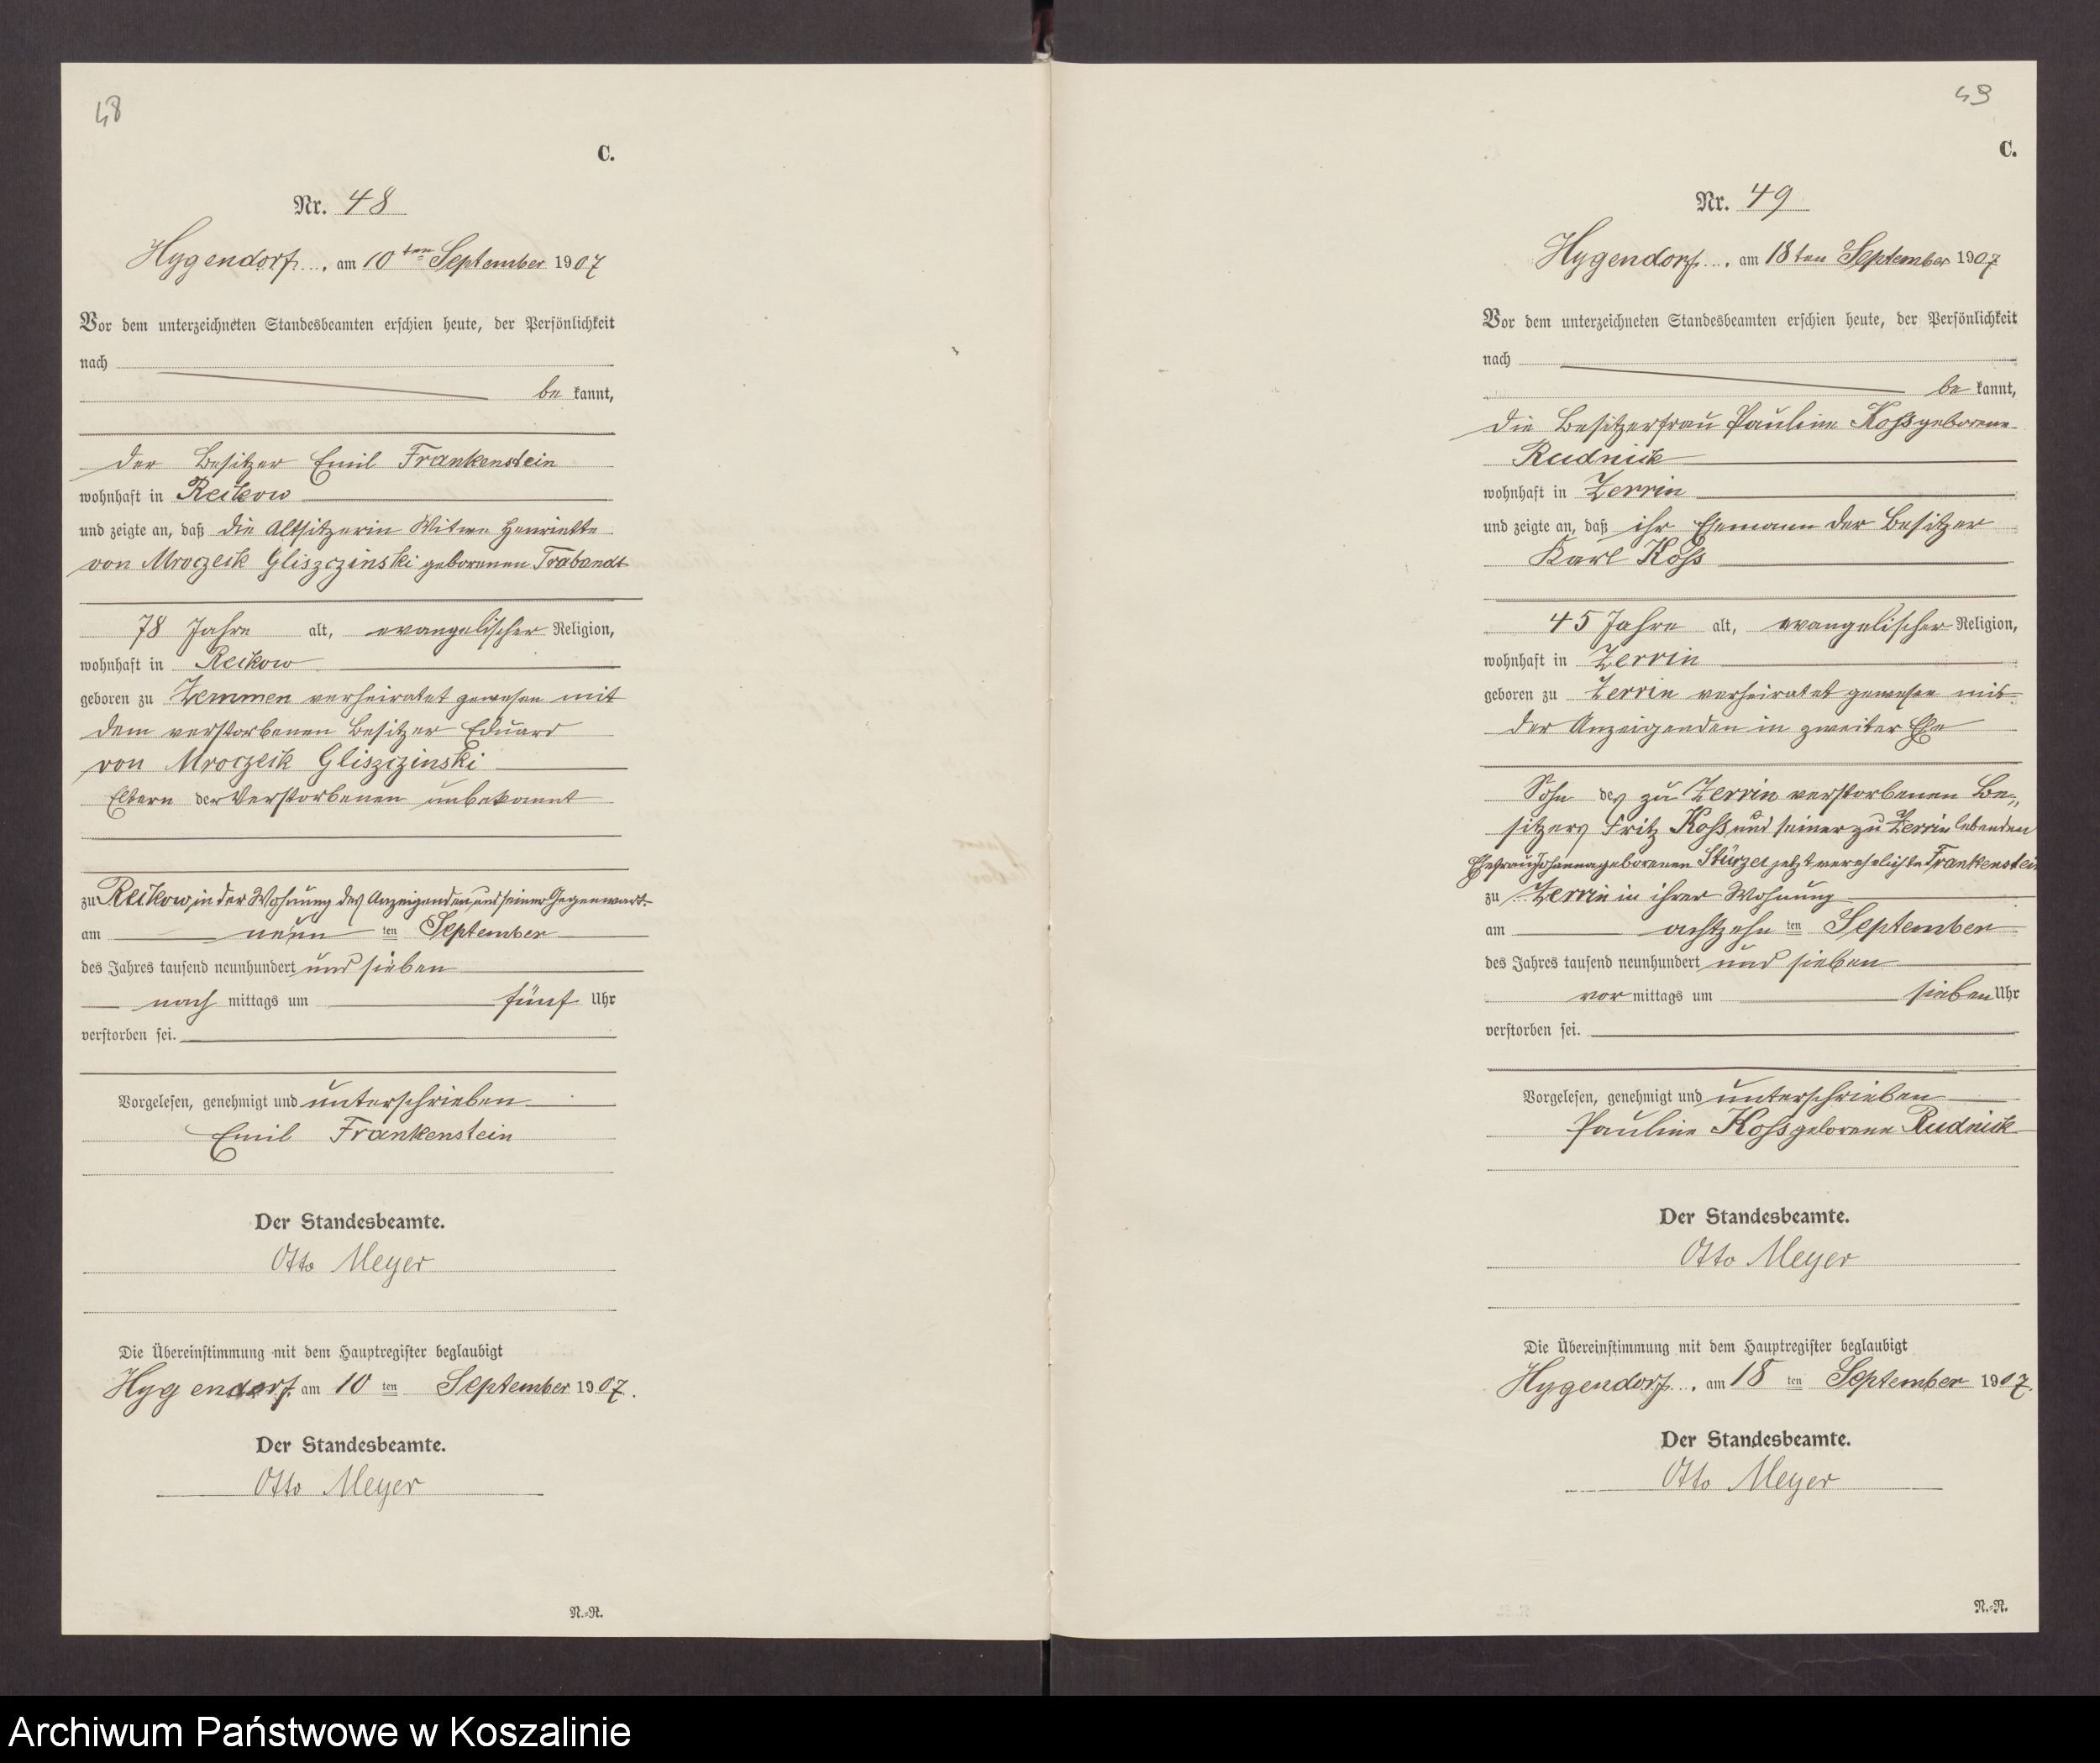 48
C.
Nr. 48
Hygendorf, am 10ten September 1907
Vor dem unterzeichneten Standesbeamten erschien heute, der Persönlichkeit
nach
be kannt,
der Besitzer Emil Frankenstein
wohnhaft in Reikow
und zeigte an, daß die Altsitzerin Witwe Henriette
von Mroczeik Gliszczinski geborenen Trabandt
78 Jahre alt, evangelischer Religion,
wohnhaft in Reikow
geboren zu Zemmen verheiratet gewesen mit
dem verstorbenen Besitzer Eduard
von Mroczeik Gliszczinski
Eltern der Verstorbenen unbekannt
zu Reikow, in der Wohnung des Anzeigenden und seiner Gegenwart
am neun ten September
des Jahres tausend neunhundert und sieben
nach mittags um fünf Uhr
verstorben sei.
Vorgelesen, genehmigt und unterschrieben
Emil Frankenstein
Der Standesbeamte.
Otto Meyer
Die Übereinstimmung mit dem Hauptregister beglaubigt
Hygendorf, am 10 ten September 1907.
Der Standesbeamte.
Otto Meyer
N.=R.
49
C.
Nr. 49
Hygendorf, am 18ten September 1907
Vor dem unterzeichneten Standesbeamten erschien heute, der Persönlichkeit
nach
be kannt,
die Besitzerfrau Pauline Koss geborene
Rudnick
wohnhaft in Zerrin
und zeigte an, daß ihr Ehemann der Besitzer
Karl Koss
45 Jahre alt, evangelischer Religion,
wohnhaft in Zerrin
geboren zu Zerrin verheiratet gewesen mit
der Anzeigenden in zweiter Ehe
Sohn des zu Zerrin verstorbenen Be„
sitzers Fritz Koss und seiner zu Zerrin lebenden
Ehefrau Johanna geborenen Stürzel jetzt verehelichte Frankenstein
zu Zerrin in ihrer Wohnung
am achtzehn ten September
des Jahres tausend neunhundert und sieben
vor mittags um sieben Uhr
verstorben sei.
Vorgelesen, genehmigt und unterschrieben
Pauline Koss geborene Rudnick
Der Standesbeamte.
Otto Meyer
Die Übereinstimmung mit dem Hauptregister beglaubigt
Hygendorf, am 18 ten September 1907.
Der Standesbeamte.
Otto Meyer
N.=R.
Archiwum Państwowe w Koszalinie